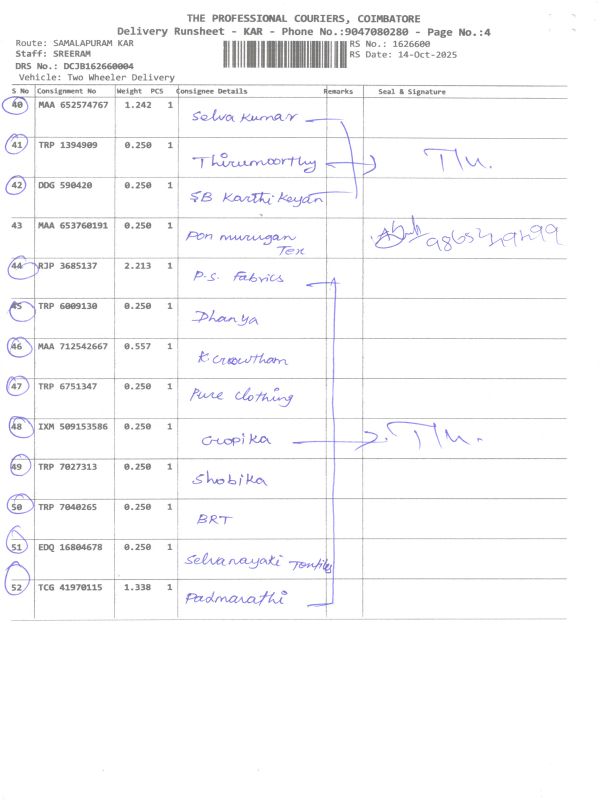 THE PROFESSIONAL COURIERS, COIMBATORE
Delivery Runsheet - KAR - Phone No.:9047080280 - Page No.:4
Route: SAMALAPURAM KAR RS No.: 1626600
Staff: SREERAM RS Date: 14-Oct-2025
DRS No.: DCJB162660004
Vehicle: Two Wheeler Delivery
S No Consignment No Weight PCS Consignee Details Remarks Seal & Signature
40 MAA 652574767 1.242 1 Selva Kumar
41 TRP 1394909 0.250 1 Thirumoorthy T/u.
42 DDG 590420 0.250 1 SB Karthikeyan
43 MAA 653760191 0.250 1 Pon murugan
Tex
44 RJP 3685137 2.213 1 P.S. Fabrics
45 TRP 6009130 0.250 1 Dhanya
46 MAA 712542667 0.557 1 K. Gowtham
47 TRP 6751347 0.250 1 Pure Clothing
48 IXM 509153586 0.250 1 Gopika T/u.
49 TRP 7027313 0.250 1 Shobika
50 TRP 7040265 0.250 1 BRT
51 EDQ 16804678 0.250 1 Selvanayaki
52 TCG 41970115 1.338 1 Padmarathi